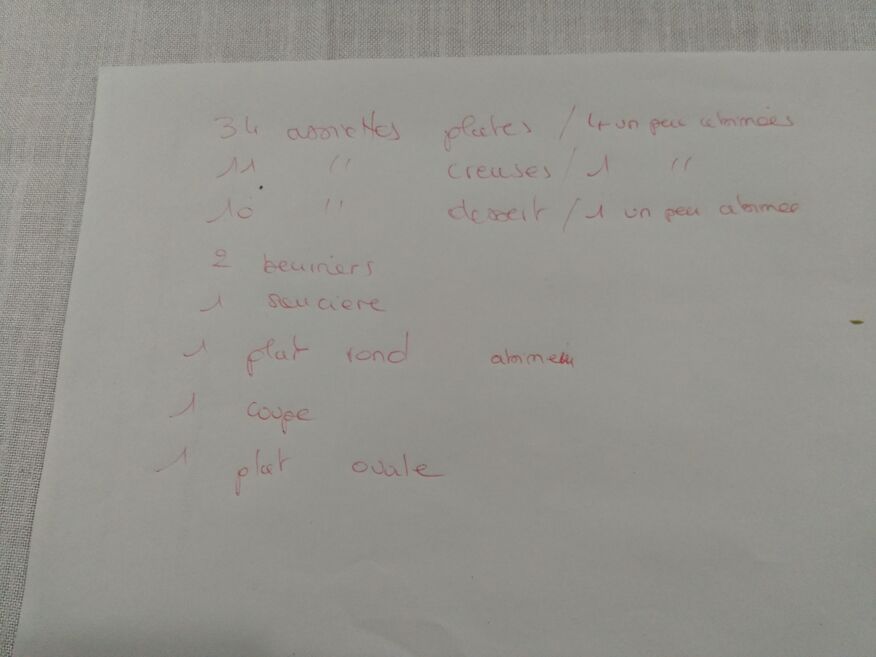 34 assiettes plates / 4 un peu abimées
11 " creuses / 1 "
10 " dessert / 1 un peu abimée
2 beurriers
1 sauciere
1 plat rond abimé
1 coupe
1 plat ovale